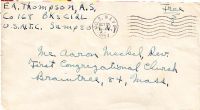 E.A. Thompson, A.S.
Co 168 Bks
U.S.N.T.C. Sampson
Free
Mr Aaron Meckel Dev.
First Congregational Church
Braintree, 84, Mass.